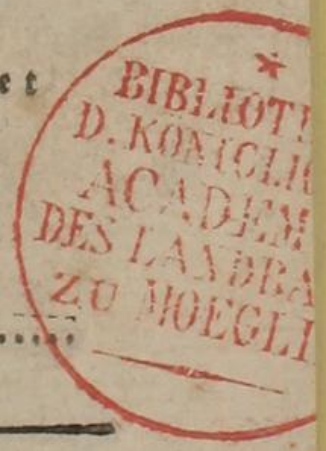 et
*
BIBLIOT
D. KÖNIGLIC
ACADEM
DES LANDBA
ZU MOEGLI